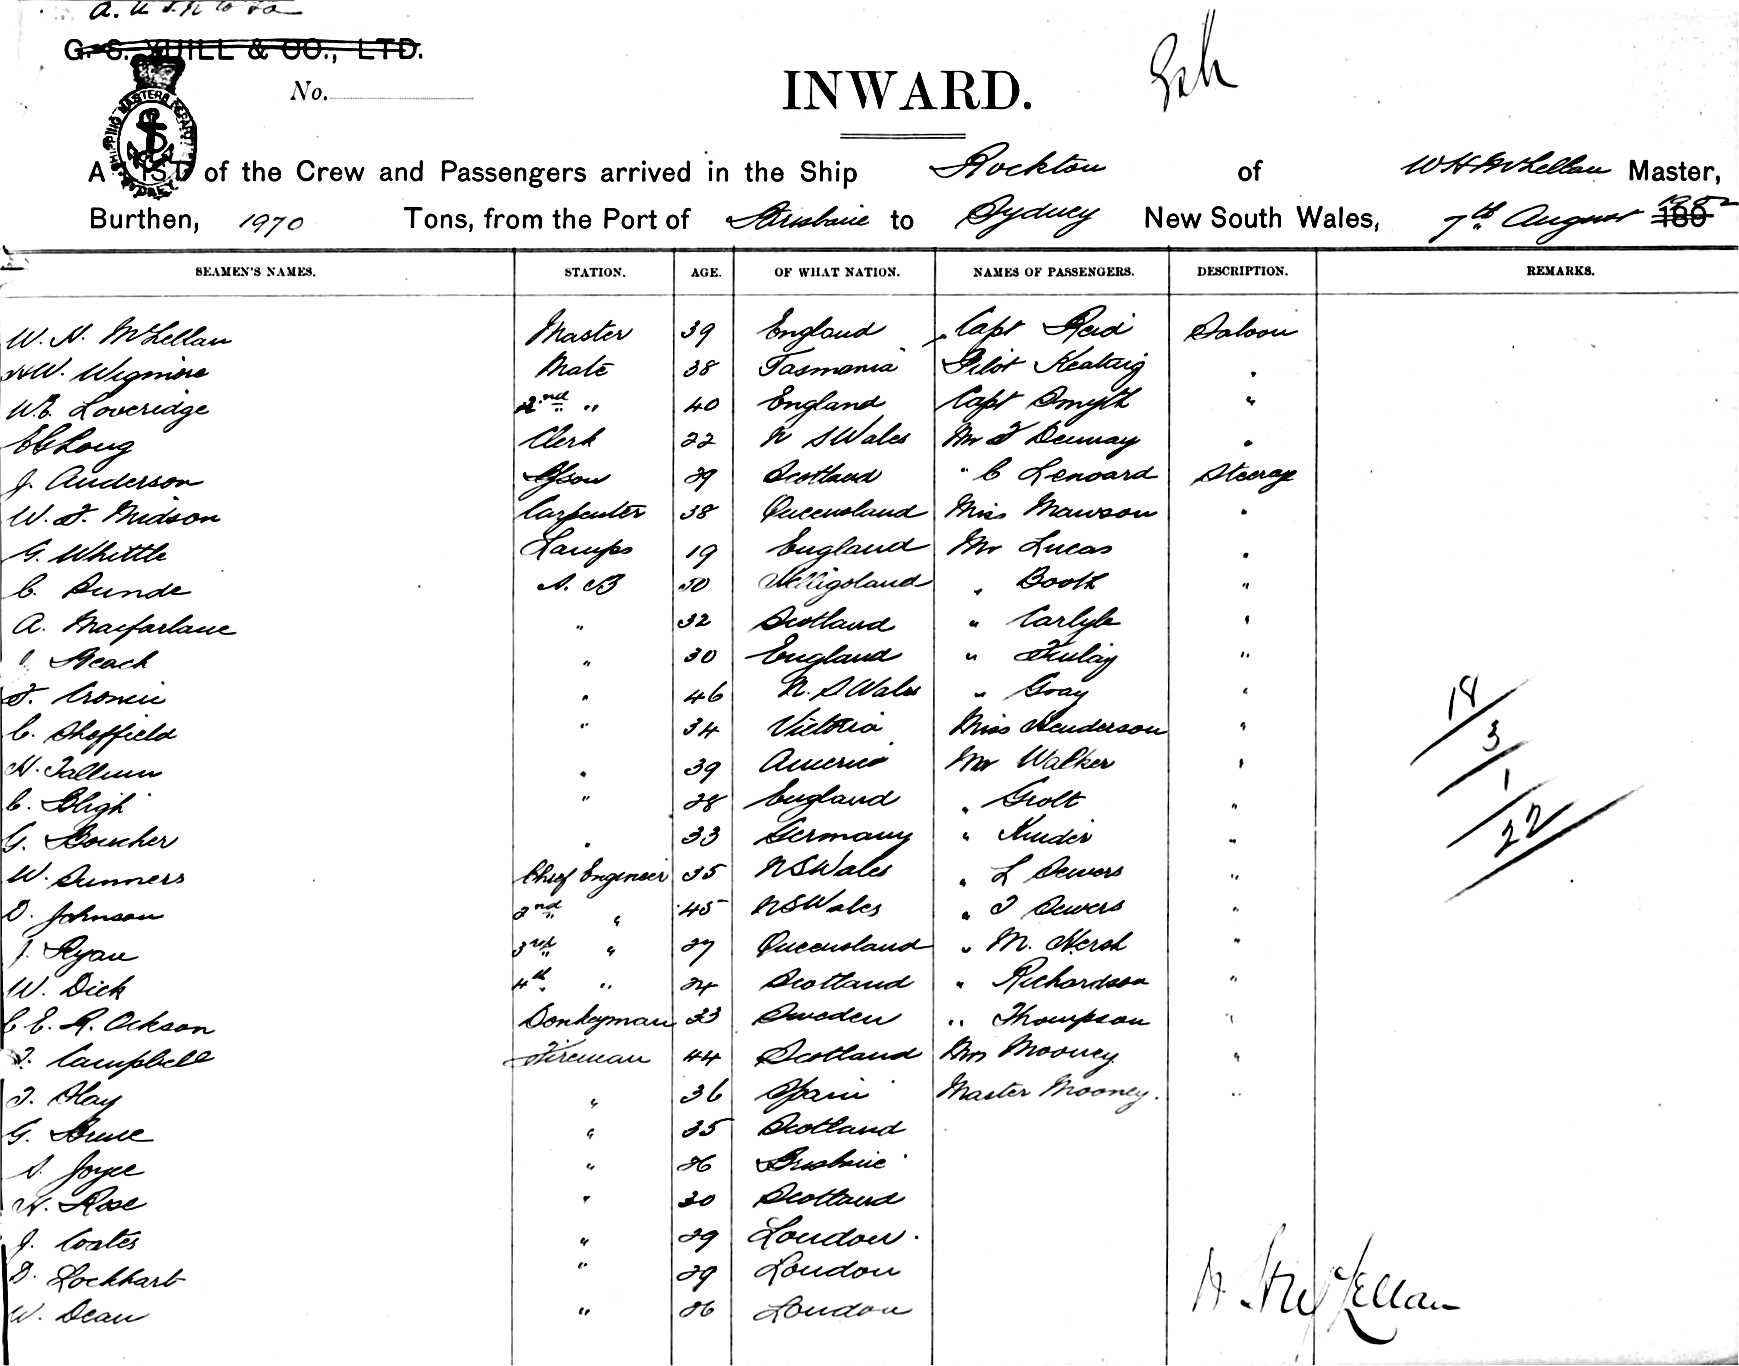 A. U. S. N. Co Ltd
G. S. YUILL & CO., LTD.
No.
INWARD.
SHIPPING MASTERS DEPARTMENT SYDNEY
A LIST of the Crew and Passengers arrived in the Ship Rockton of W H McLellan Master,
Burthen, 1970 Tons, from the Port of Brisbane to Sydney New South Wales, 7th August 1882
SEAMEN'S NAMES. STATION. AGE. OF WHAT NATION. NAMES OF PASSENGERS. DESCRIPTION. REMARKS.
W. H. McLellan Master 39 England Capt Reid Saloon
H W. Wigmore Mate 38 Tasmania Pilot Keatinig "
W E Loveridge 2nd " 40 England Capt Smyth "
E G Long Clerk 22 N S Wales Mr F Denway "
J. Anderson 29 Scotland " C Lenoard Steerage
W. F. Midson Carpenter 38 Queensland Miss Mawson "
G. Whittle Lamps 19 England Mr Lucas "
C. Sunde A. B 50 Helligoland " Booth "
A. Macfarlane " 32 Scotland " Carlyle "
Beach " 30 England " Finlay "
T. Cronin " 46 N. S Wales " Gray "
C. Sheffield " 34 Victoria Miss Henderson "
H. Tallum " 39 America Mr Walker "
C. Bligh " 28 England " Grolt "
G. Boucher " 33 Germany " Kinder "
W. Sunners Chief Engineer 35 N S Wales " L Sewers "
D. Johnson 2nd " 45 N S Wales " J Sewers "
J. Ryan 3rd " 27 Queensland " M. Hersh "
W. Dick 4th " 24 Scotland " Richardson "
C E. R. Ockson Donkeyman 33 Sweden " Thompson "
J. Campbell Fireman 44 Scotland Mrs Mooney "
J. Hay " 36 Spain Master Mooney. "
G. Bruce " 35 Scotland
S. Joyce " 26 Brisbane
H. Rose " 30 Scotland
J. Coates " 29 London
D. Lockhart " 29 London
W. Dean " 26 London
18
3
1
22
W H McLellan